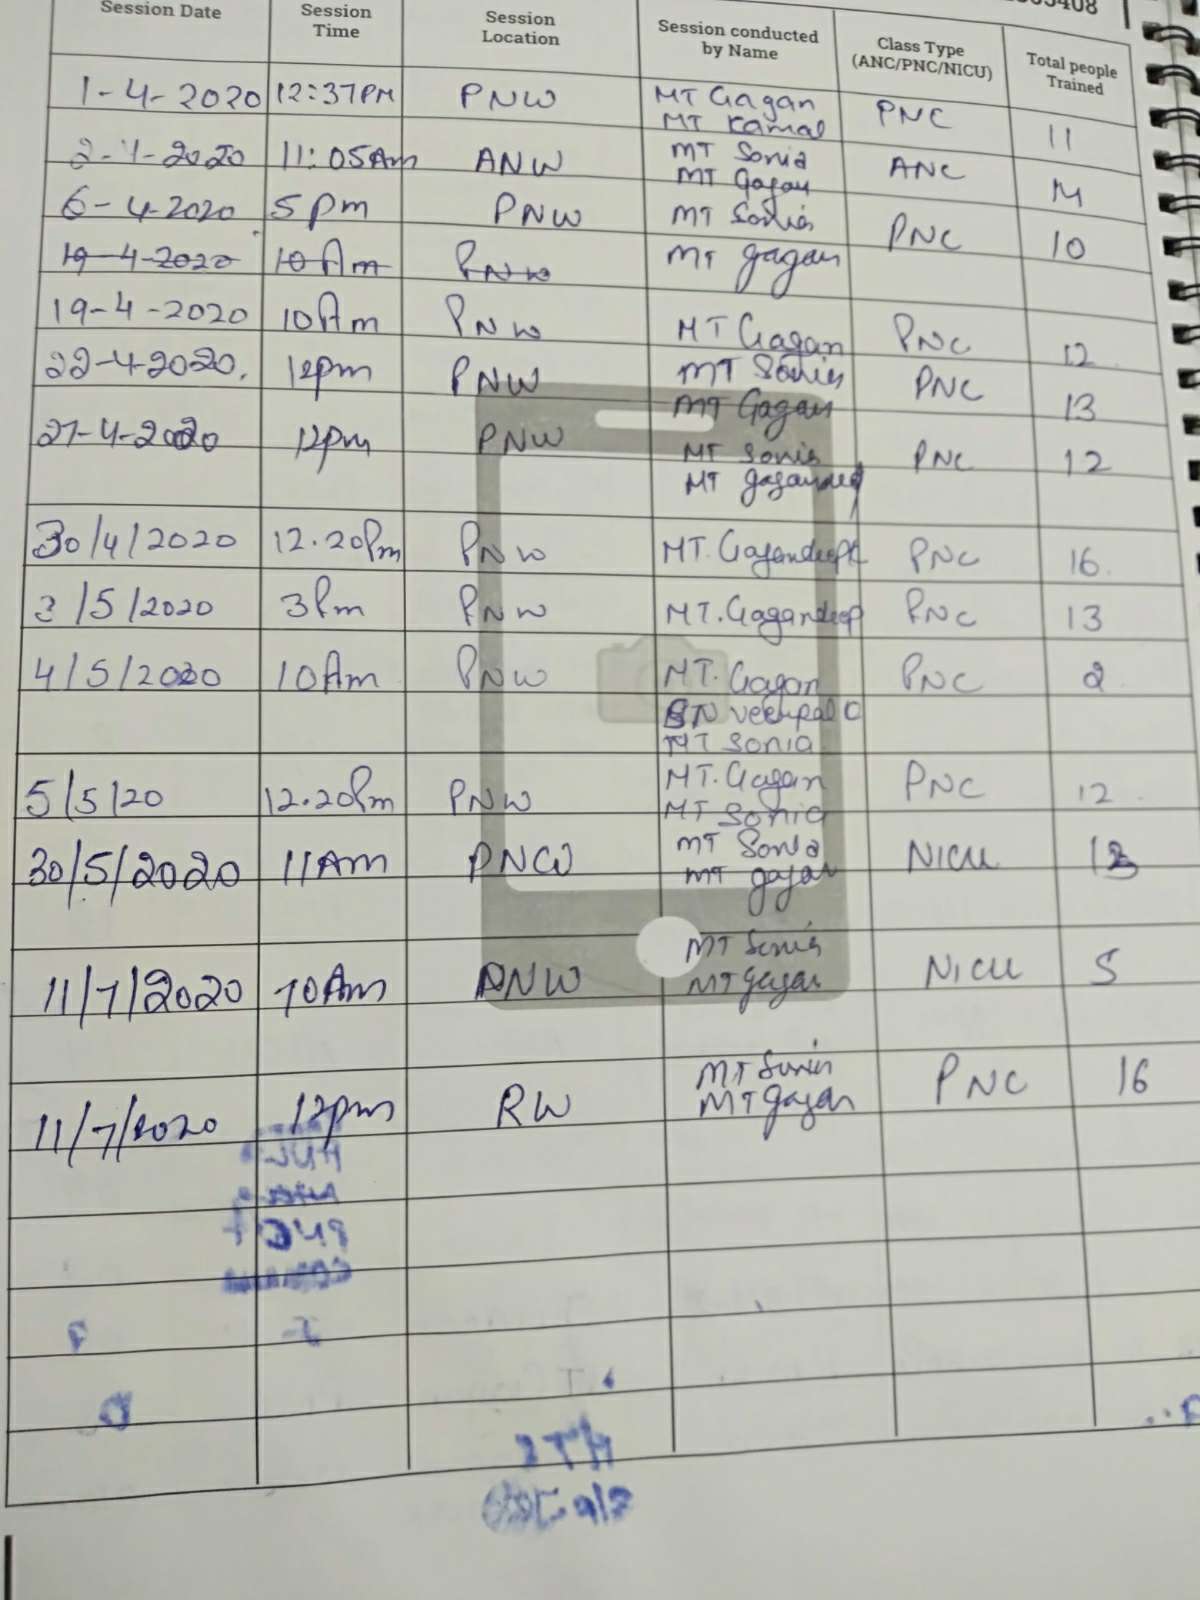 Session Date Session Time Session Location Session conducted by Name Class Type (ANC/PNC/NICU) Total people Trained
1-4-2020 12:37PM PNW MT Gagan MT Kamal PNC 11
2-4-2020 11:05Am ANW MT Sonia MT gagan ANC
6-4-2020 5pm PNW MT Sonia PNC 10
19-4-2020 10Am PNW MT gagan
19-4-2020 10Am PNW MT Gagan PNC 12
22-4-2020. 12pm PNW MT Sonia MT Gagan PNC 13
27-4-2020 12pm PNW MT Sonia MT gagandeep PNC 12
30/4/2020 12.20Pm PNW MT. PNC 16.
/5/2020 3Pm PNW MT.Gagandeep PNC 13
4/5/2020 10Am PNW MT. Gagan MT Sonia PNC 2
5/5/20 12.20Pm PNW MT. Gagan MT Sonia PNC 12
30/5/2020 11AM PNCW MT Sonia MT gagan NICU
11/7/2020 10Am PNW MT Sonia MT gagan NICU 5
11/7/2020 12pm RW MT Sonia MT gagan PNC 16